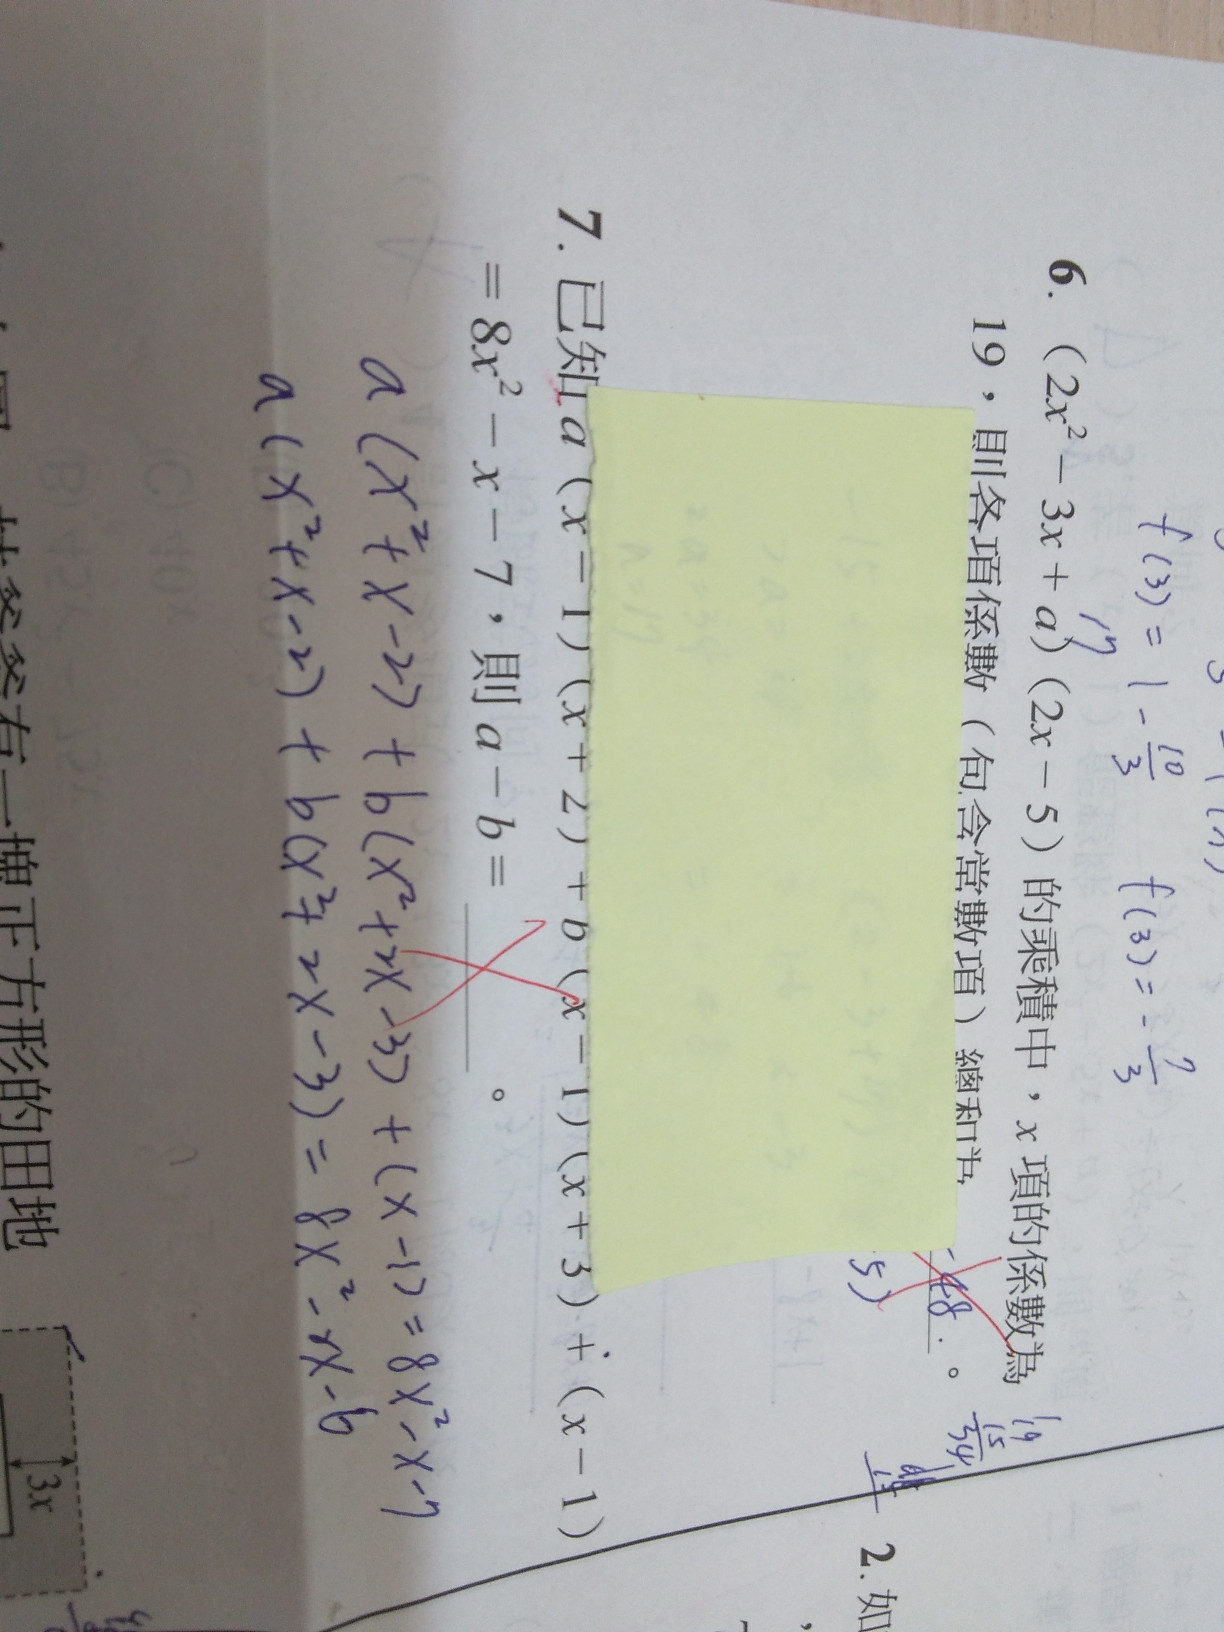 f(3) = 1 - 10/3 f(3) = - 7/3
6. (2x² - 3x + a) (2x - 5) 的乘積中，x 項的係數為
17
19，則各項係數（包含常數項）總和為 -48 。
5)
19
15
34
7. 已知 a (x - 1) (x + 2) + b (x - 1) (x + 3) + (x - 1)
= 8x² - x - 7，則 a - b = ________ 。
a (x² + x - 2) + b (x² + 2x - 3) + (x - 1) = 8x² - x - 7
a (x² + x - 2) + b (x² + 2x - 3) = 8x² - 2x - 6
有一塊正方形的田地
3x
2. 如